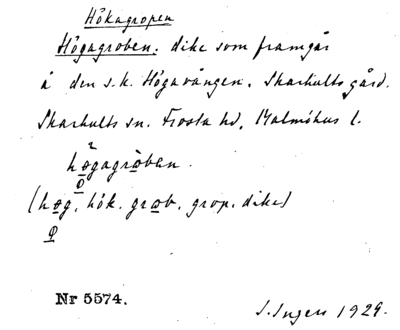 Hökagropen
Högagroben. dike som framgår
å den s.k. Högavången. Skarhults gård.
Skarhults sn. Frosta hd, Malmöhus l.
högagròben.
(høg, hök. grob, grop, dike)
Nr 5574.
I. Ingers 1929.